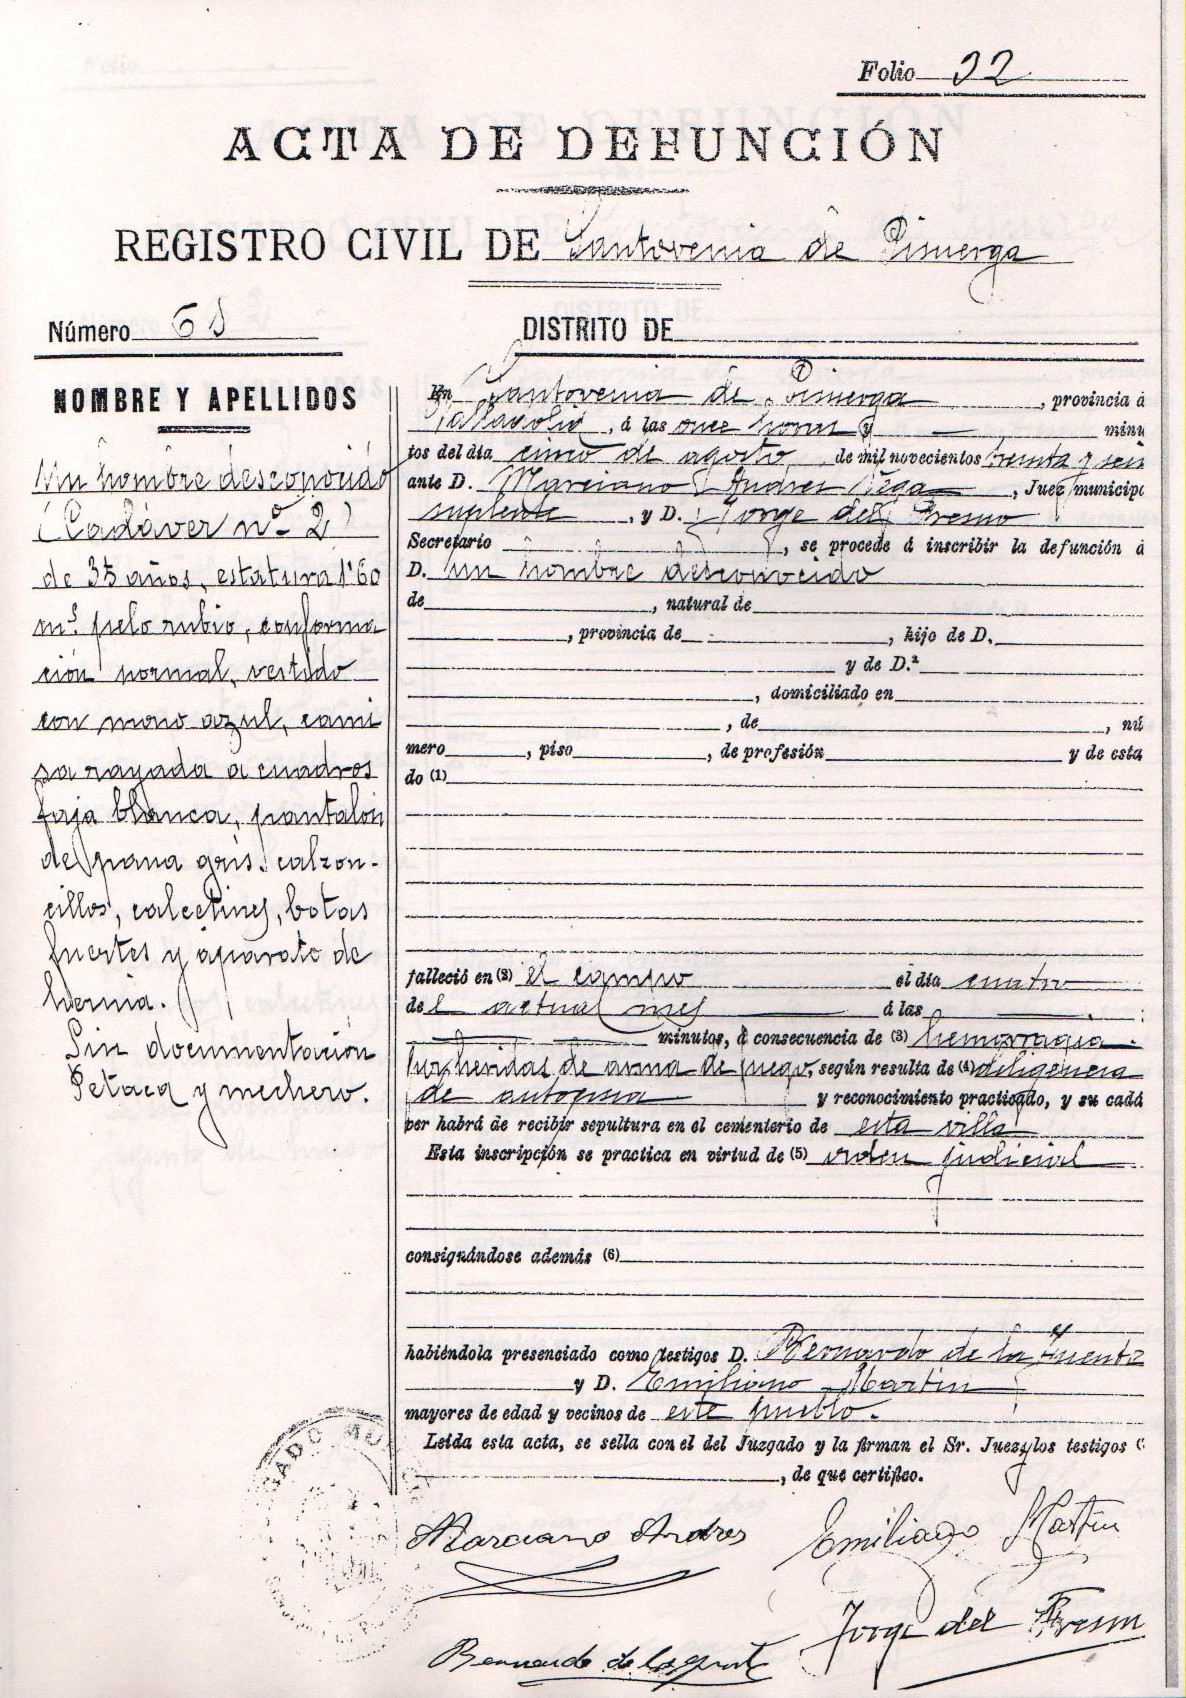 Folio 32
ACTA DE DEFUNCIÓN
REGISTRO CIVIL DE Santovenia de Pisuerga
Número 61
DISTRITO DE
NOMBRE Y APELLIDOS
Un hombre desconocido
(Cadáver nº 2)
de 35 años, estatura 1'60
ms. pelo rubio, conforma
ción normal, vestido
con mono azul, cami
sa rayada a cuadros
faja blanca, pantalon
de pana gris. calzon-
cillos, calcetines, botas
fuertes y aparato de
hernia.
Sin documentación
Petaca y mechero.
En Santovenia de Pisuerga, provincia d
Valladolid, á las once horas y minu
tos del día cinco de agosto de mil novecientos treinta y seis
ante D. Marciano Andres Vega, Juez municipa
suplente, y D. Jorge del Fresno
Secretario, se procede á inscribir la defunción d
D. un hombre desconocido
de, natural de
, provincia de, hijo de D.
y de D.ª
, domiciliado en
, de, nú
mero, piso, de profesión y de esta
do (1)
falleció en (2) el campo el día cuatro
del actual mes á las
minutos, á consecuencia de (3) hemorragia
por heridas de arma de fuego, según resulta de (4) diligencia
de autopsia y reconocimiento practicado, y su cadá
ver habrá de recibir sepultura en el cementerio de esta villa
Esta inscripción se practica en virtud de (5) orden judicial
consignándose además (6)
habiéndola presenciado como testigos D. Bernardo de la Fuente
y D. Emiliano Martin
mayores de edad y vecinos de este pueblo.
Leida esta acta, se sella con el del Juzgado y la firman el Sr. Juez y los testigos
, de que certifico.
Marciano Andres
Emiliano Martin
Jorge del Fresno
Bernardo de la Fuente